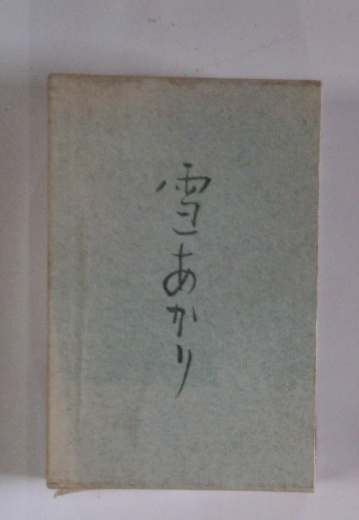 雪あかり